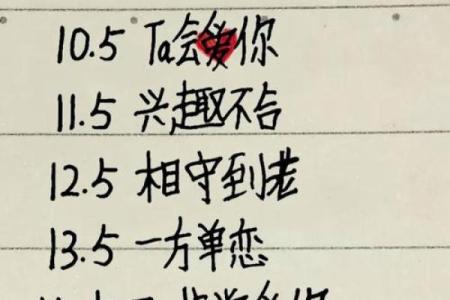 10.5 Ta会爱你
11.5 兴趣不合
12.5 相守到老
13.5 一方单恋